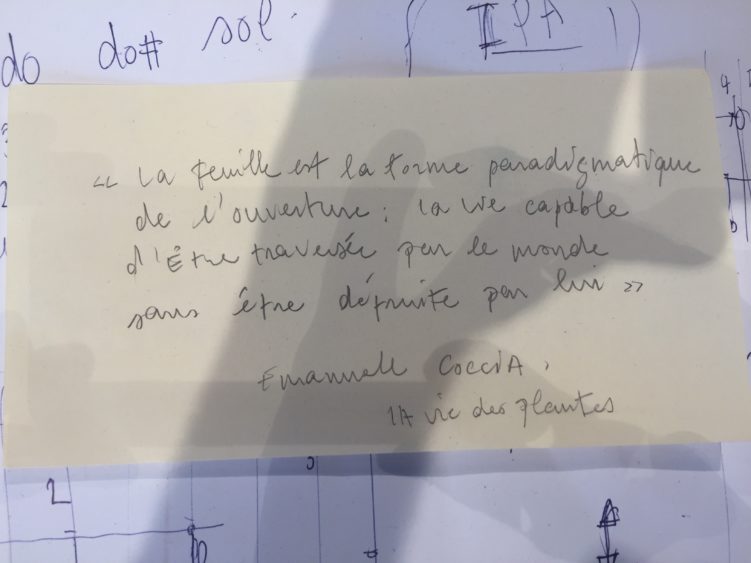 do do# sol.
IPA
4
« La feuille est la forme paradigmatique
de l'ouverture : la vie capable
d'Être traversée par le monde
sans être détruite par lui »
Emanuele COCCIA,
LA vie des plantes
2